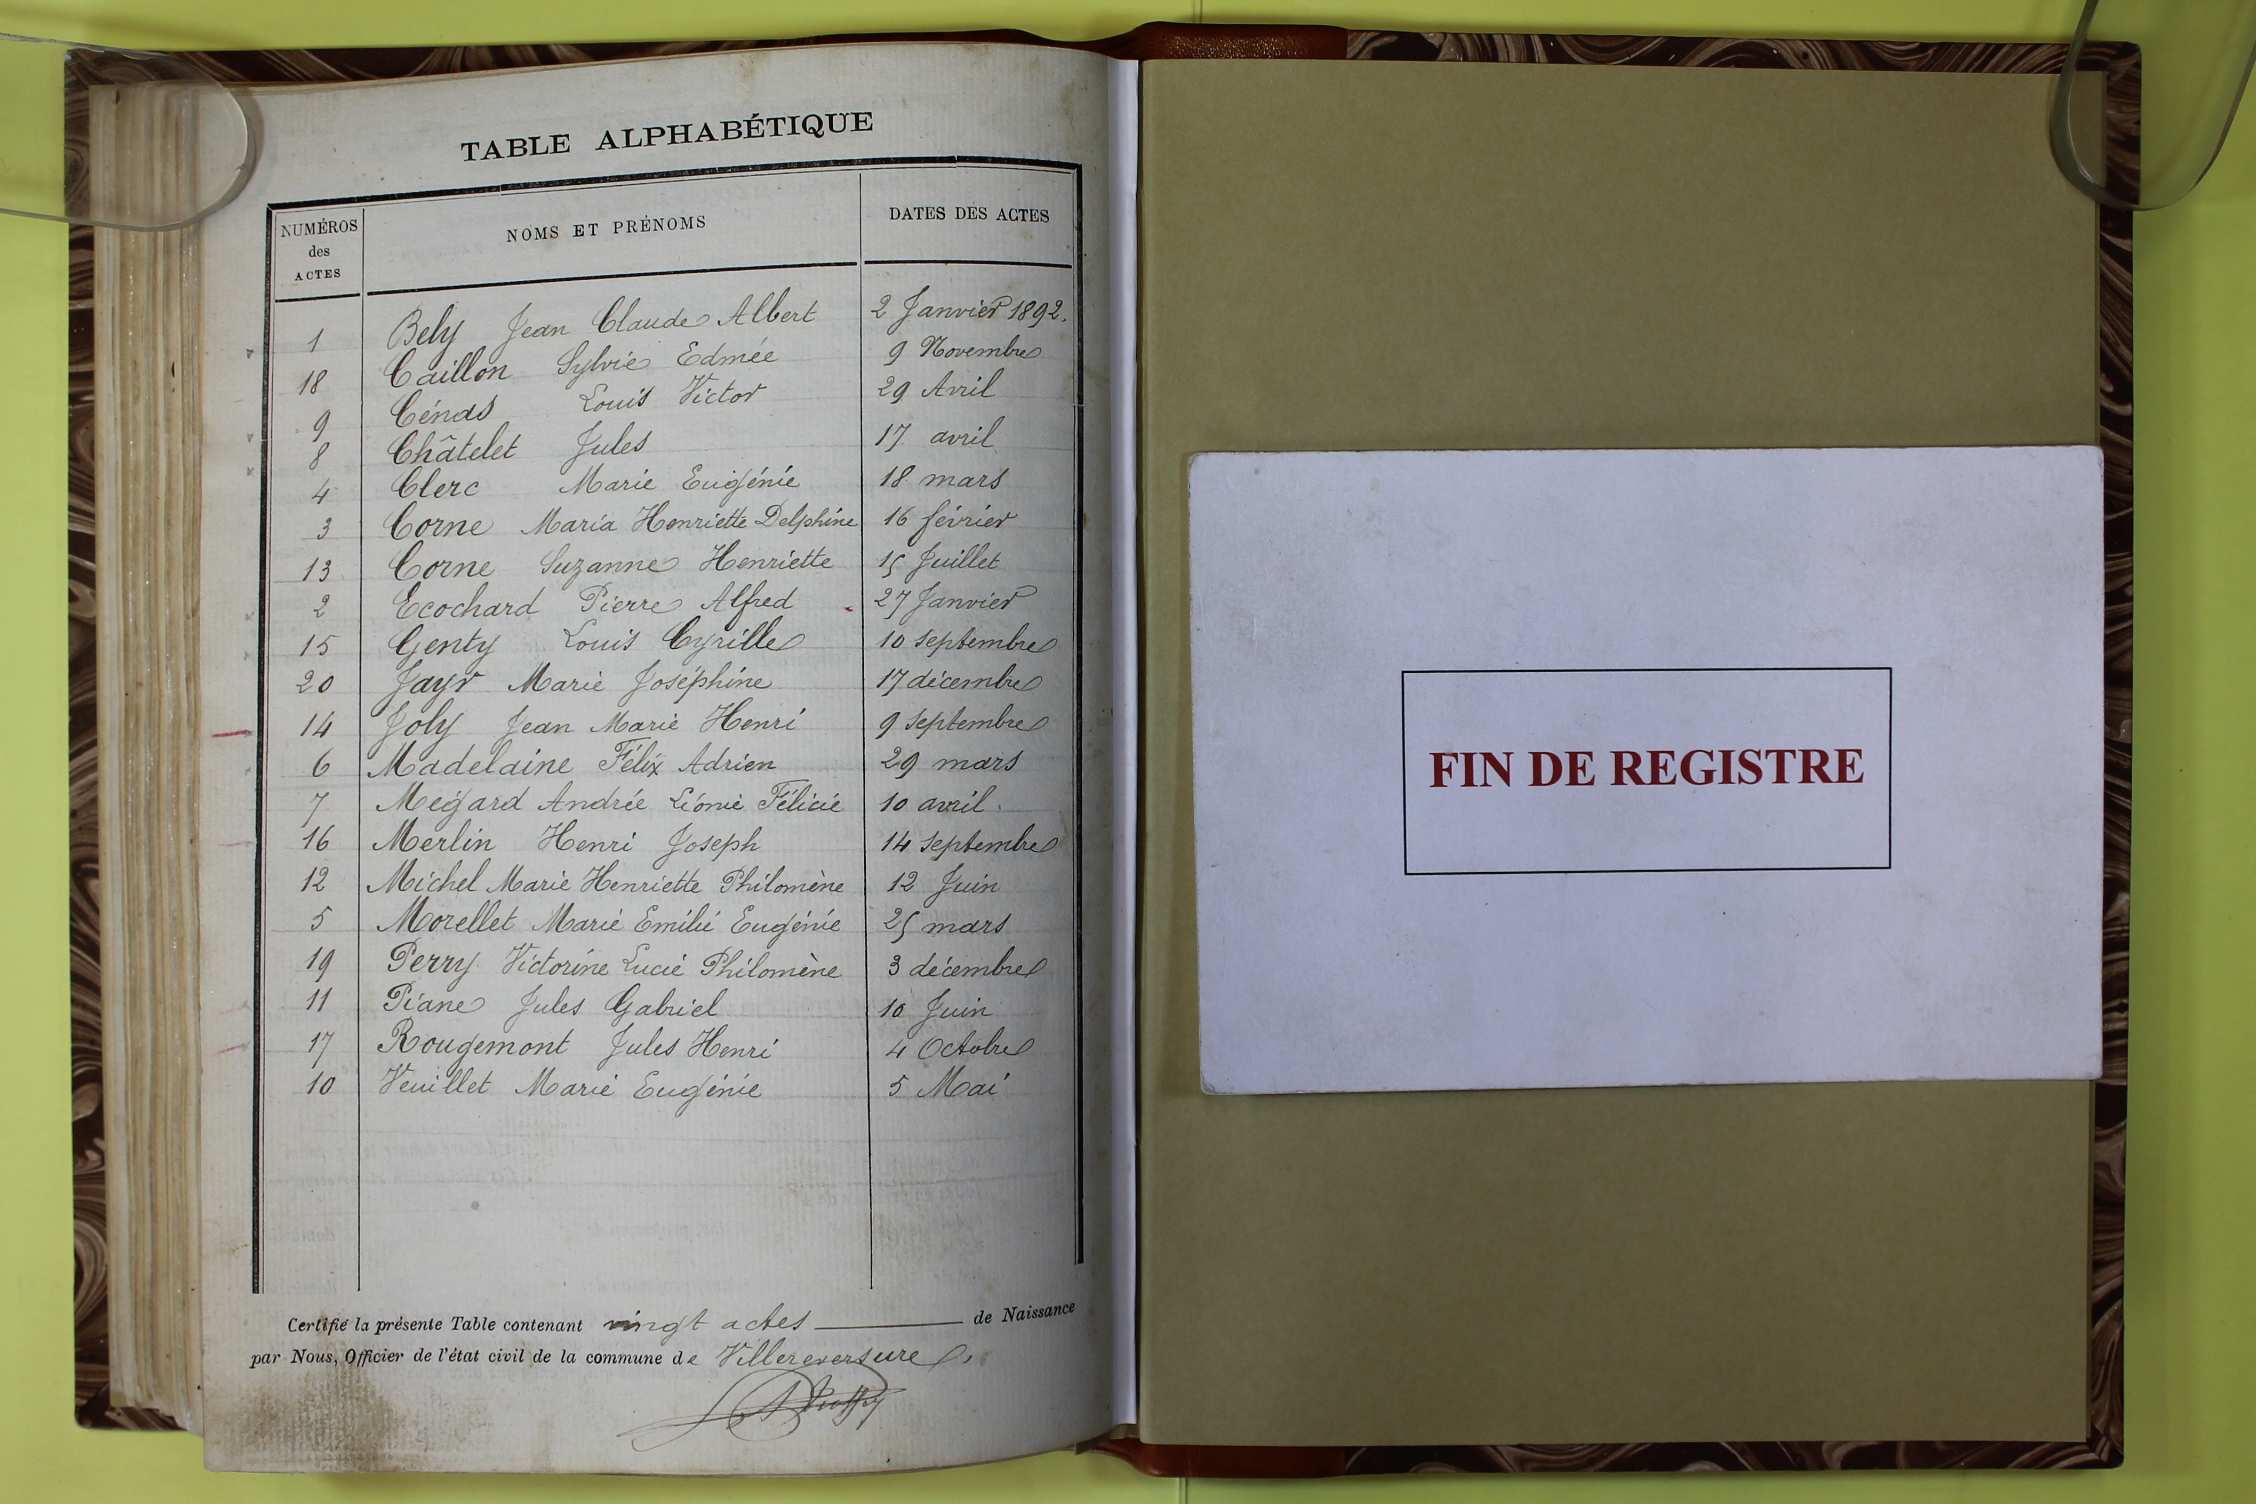 TABLE ALPHABÉTIQUE
NUMÉROS des ACTES NOMS ET PRÉNOMS DATES DES ACTES
1 Bely Jean Claude Albert 2 Janvier 1892.
18 Caillon Sylvie Edmée 9 Novembre
9 Cénas Louis Victor 29 Avril
8 Châtelet Jules 17 avril
4 Clerc Marie Eugénie 18 mars
3 Corne Maria Henriette Delphine 16 février
13 Corne Suzanne Henriette 15 Juillet
2 Ecochard Pierre Alfred 27 Janvier
15 Genty Louis Cyrille 10 septembre
20 Jayr Marie Joséphine 17 décembre
14 Joly Jean Marie Henri 9 septembre
6 Madelaine Félix Adrien 29 mars
7 Mégard Andrée Léonie Félicie 10 avril.
16 Merlin Henri Joseph 14 septembre
12 Michel Marie Henriette Philomène 12 Juin
5 Morellet Marie Emilie Eugénie 25 mars
19 Perry Victorine Lucie Philomène 3 décembre
11 Piane Jules Gabriel 10 Juin
17 Rougemont Jules Henri 4 Octobre
10 Veuillet Marie Eugénie 5 Mai
Certifié la présente Table contenant vingt actes de Naissance
par Nous, Officier de l'état civil de la commune de Villereversure
FIN DE REGISTRE